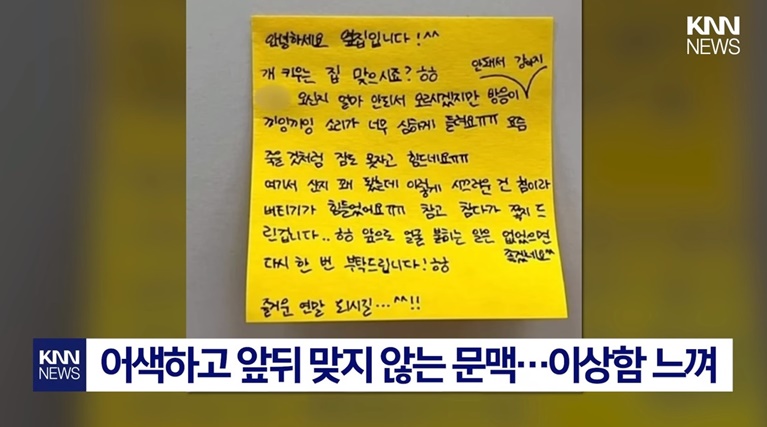 KNN
NEWS
안녕하세요 옆집입니다!^^
개 키우는 집 맞으시죠?ㅎㅎ
안돼서 강아지
오신지 얼마 안되서 모르시겠지만 방음이
끼잉끼잉 소리가 너무 심하게 들려요ㅠㅠ 요즘
죽을 것처럼 잠도 못자고 힘드네요ㅠㅠ
여기서 산지 꽤 됐는데 이렇게 시끄러운 건 첨이라
버티기가 힘들었어요ㅠㅠ 참고 참다가 쪽지 드
린겁니다..ㅎㅎ 앞으로 얼굴 붉히는 일은 없었으면
좋겠네요^^
다시 한 번 부탁드립니다!ㅎㅎ
즐거운 연말 되시길...^^!!
KNN
NEWS
어색하고 앞뒤 맞지 않는 문맥…이상함 느껴